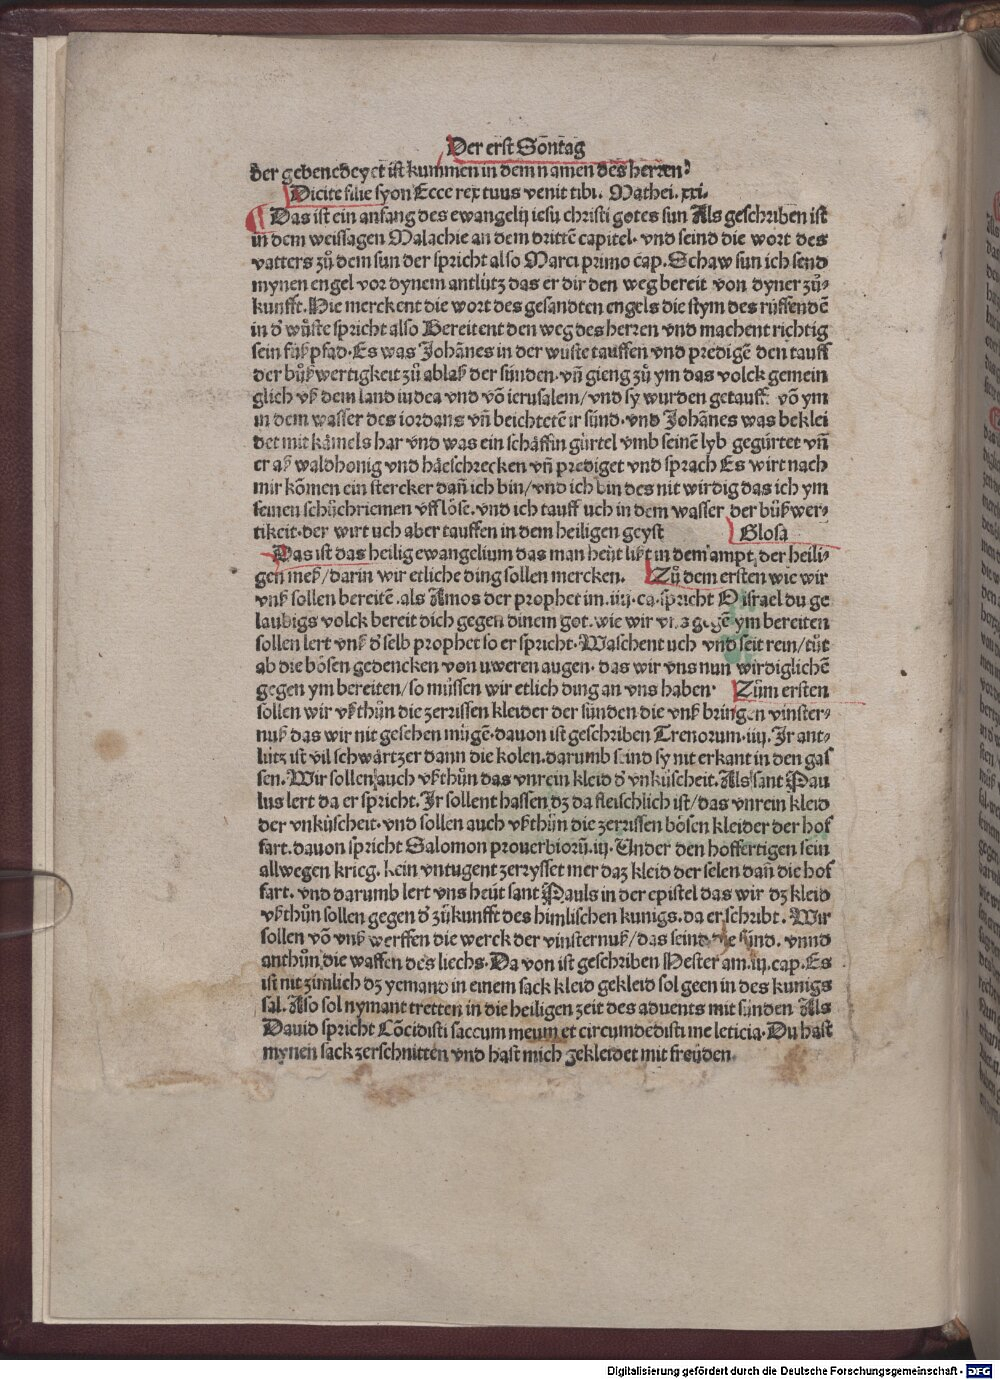 Der erst Sontag
der gebenedeyet ist kummen in dem namen des herren.
Dicite filie syon Ecce rex tuus venit tibi. Mathei. xxi.
Das ist ein anfang des ewangelij iesu christi gotes sun Als geschriben ist
in dem weissagen Malachie an dem drittē capitel. vnd seind die wort des
vatters zů dem sun der spricht also Marci primo cap. Schaw sun ich send
mynen engel vor dynem antlütz das er dir den weg bereit von dyner zů-
kunfft. Hie merckent die wort des gesandten engels die stym des rüffendē
in d' wůste spricht also Bereitent den weg des herren vnd machent richtig
sein fůßpfad. Es was Johānes in der wuste tauffen vnd predigē den tauff
der bůßwertigkeit zů ablaß der sünden. vñ gieng zů ym das volck gemein
glich vß dem land iudea vnd vō ierusalem/ vnd sy wurden getauff vō ym
in dem wasser des iordans vñ beichtetē ir sünd. vnd Johānes was beklei
det mit kāmels har vnd was ein schäffin gürtel vmb seinē lyb gegürtet vñ
er aß waldhonig vnd häeschrecken vñ prediget vnd sprach Es wirt nach
mir kōmen ein stercker dañ ich bin/ vnd ich bin des nit wirdig das ich ym
seinen schůchriemen vfflöse. vnd ich tauff uch in dem wasser der bůßwer-
tikeit. der wirt uch aber tauffen in dem heiligen geyst Glosa
Das ist das heilig ewangelium das man heüt lißt in dem ampt der heili-
gen meß/ darin wir etliche ding sollen mercken. Zů dem ersten wie wir
vnß sollen bereitē. als Amos der prophet im. iiij. ca. spricht O israel du ge
laubigs volck bereit dich gegen dinem got. wie wir vns gegē ym bereiten
sollen lert vnß d' selb prophet so er spricht. Waschent uch vnd seit rein/ tůt
ab die bösen gedencken von uweren augen. das wir vns nun wirdiglichē
gegen ym bereiten/ so müssen wir etlich ding an vns haben. Zům ersten
sollen wir vßthůn die zerrissen kleider der sünden die vnß bringen vinster-
nuß das wir nit gesehen mügē. dauon ist geschriben Trenorum. iiij. Ir ant-
lütz ist vil schwärtzer dann die kolen. darumb seind sy nit erkant in den gas
sen. Wir sollen auch vßthůn das vnrein kleid d' vnküscheit. Als sant Pau
lus lert da er spricht. Ir sollent hassen dz da fleischlich ist/ das vnrein kleid
der vnküscheit. vnd sollen auch vßthůn die zerrissen bösen kleider der hof
fart. dauon spricht Salomon prouerbiorū. iij. Under den hoffertigen sein
allwegen krieg. kein vntugent zerrysset mer daz kleid der selen dañ die hof
fart. vnd darumb lert vns heüt sant Pauls in der epistel das wir dz kleid
vßthůn sollen gegen d' zůkunfft des himlischen kunigs. da er schribt. Wir
sollen vō vnß werffen die werck der vinsternuß/ das seind die sünd. vnnd
anthůn die waffen des liechs. Da von ist geschriben Hester am. iij. cap. Es
ist nit zimlich dz yemand in einem sack kleid gekleid sol geen in des kunigs
sal. Aso sol nymant tretten in die heiligen zeit des aduents mit sünden Als
Dauid spricht Cōcidisti saccum meum et circumdedisti me leticia. Du hast
mynen sack zerschnitten vnd hast mich gekleidet mit freüden
Digitalisierung gefördert durch die Deutsche Forschungsgemeinschaft - DFG